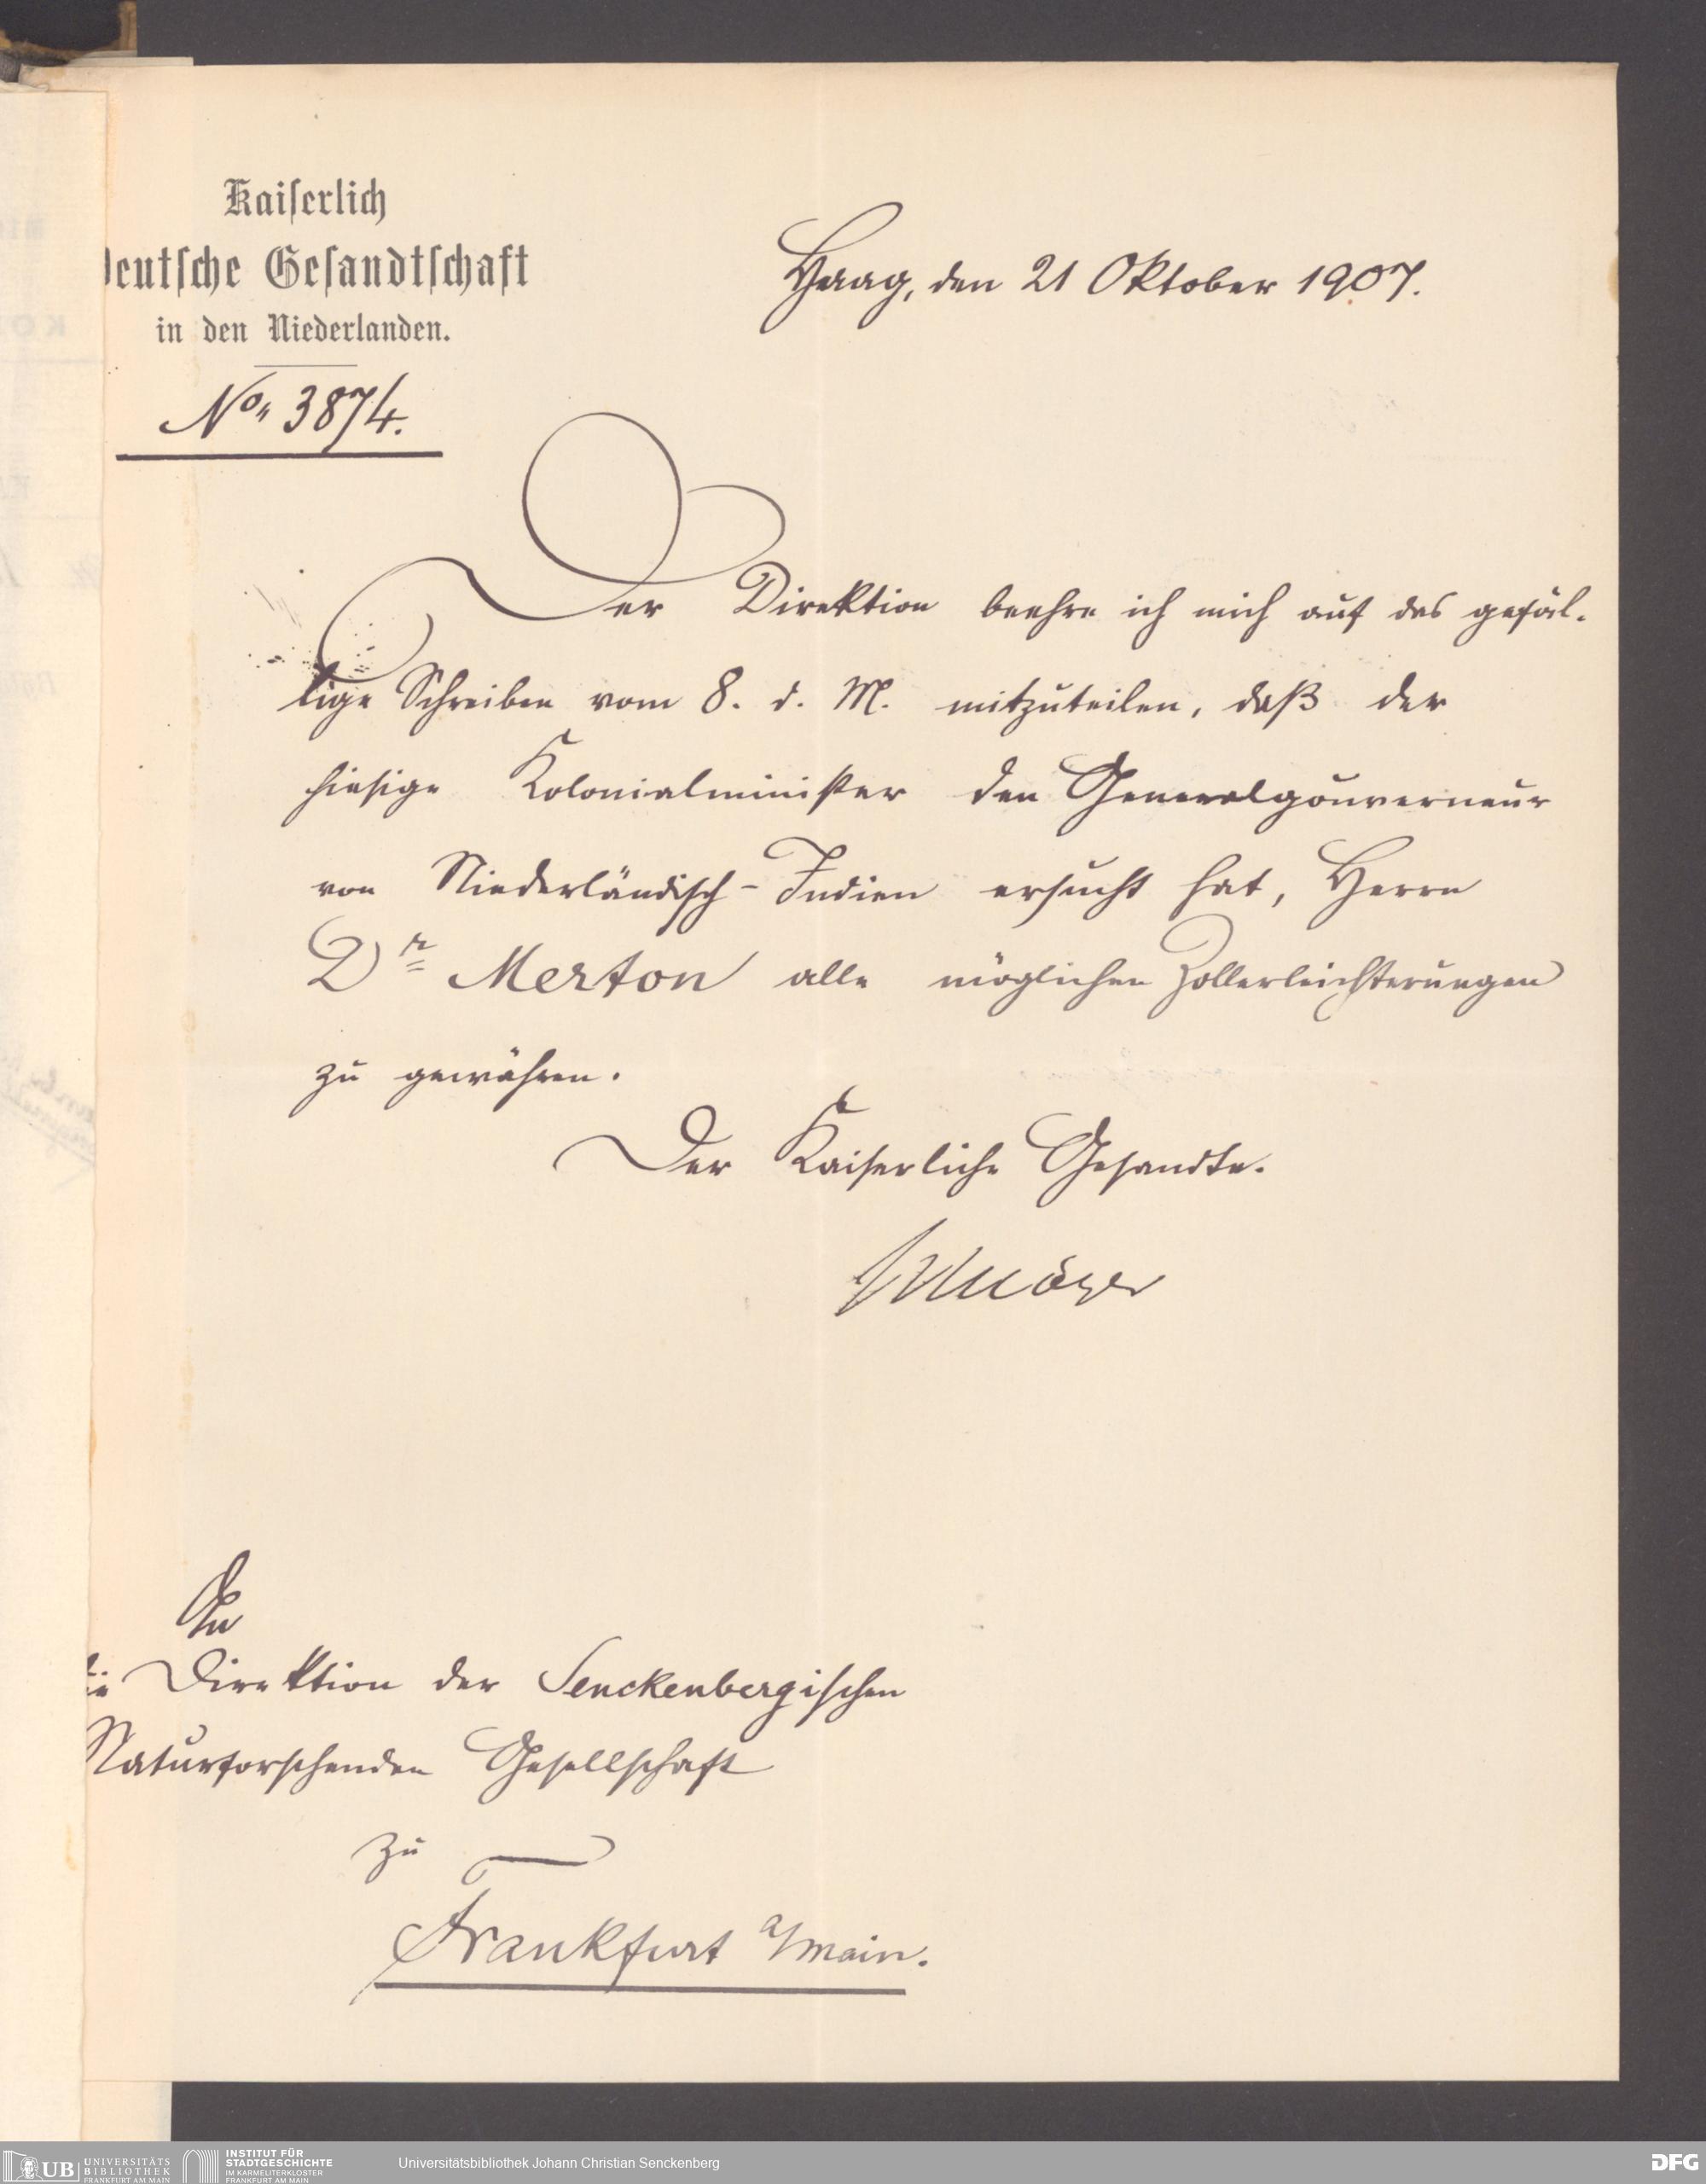 Kaiserlich
Deutsche Gesandtschaft
in den Niederlanden.
No. 3874.
Haag, den 21 Oktober 1907.
Der Direktion beehre ich mich auf das gefäl-
lige Schreiben vom 8. d. M. mitzuteilen, daß der
hiesige Kolonialminister den Generalgouverneur
von Niederländisch-Indien ersucht hat, Herrn
Dr Merton alle möglichen Zollerleichterungen
zu gewähren.
Der Kaiserliche Gesandte.
An
die Direktion der Senckenbergischen
Naturforschenden Gesellschaft
zu
Frankfurt a/Main.
UB UNIVERSITÄTS
BIBLIOTHEK
FRANKFURT AM MAIN
INSTITUT FÜR
STADTGESCHICHTE
IM KARMELITERKLOSTER
FRANKFURT AM MAIN
Universitätsbibliothek Johann Christian Senckenberg
DFG